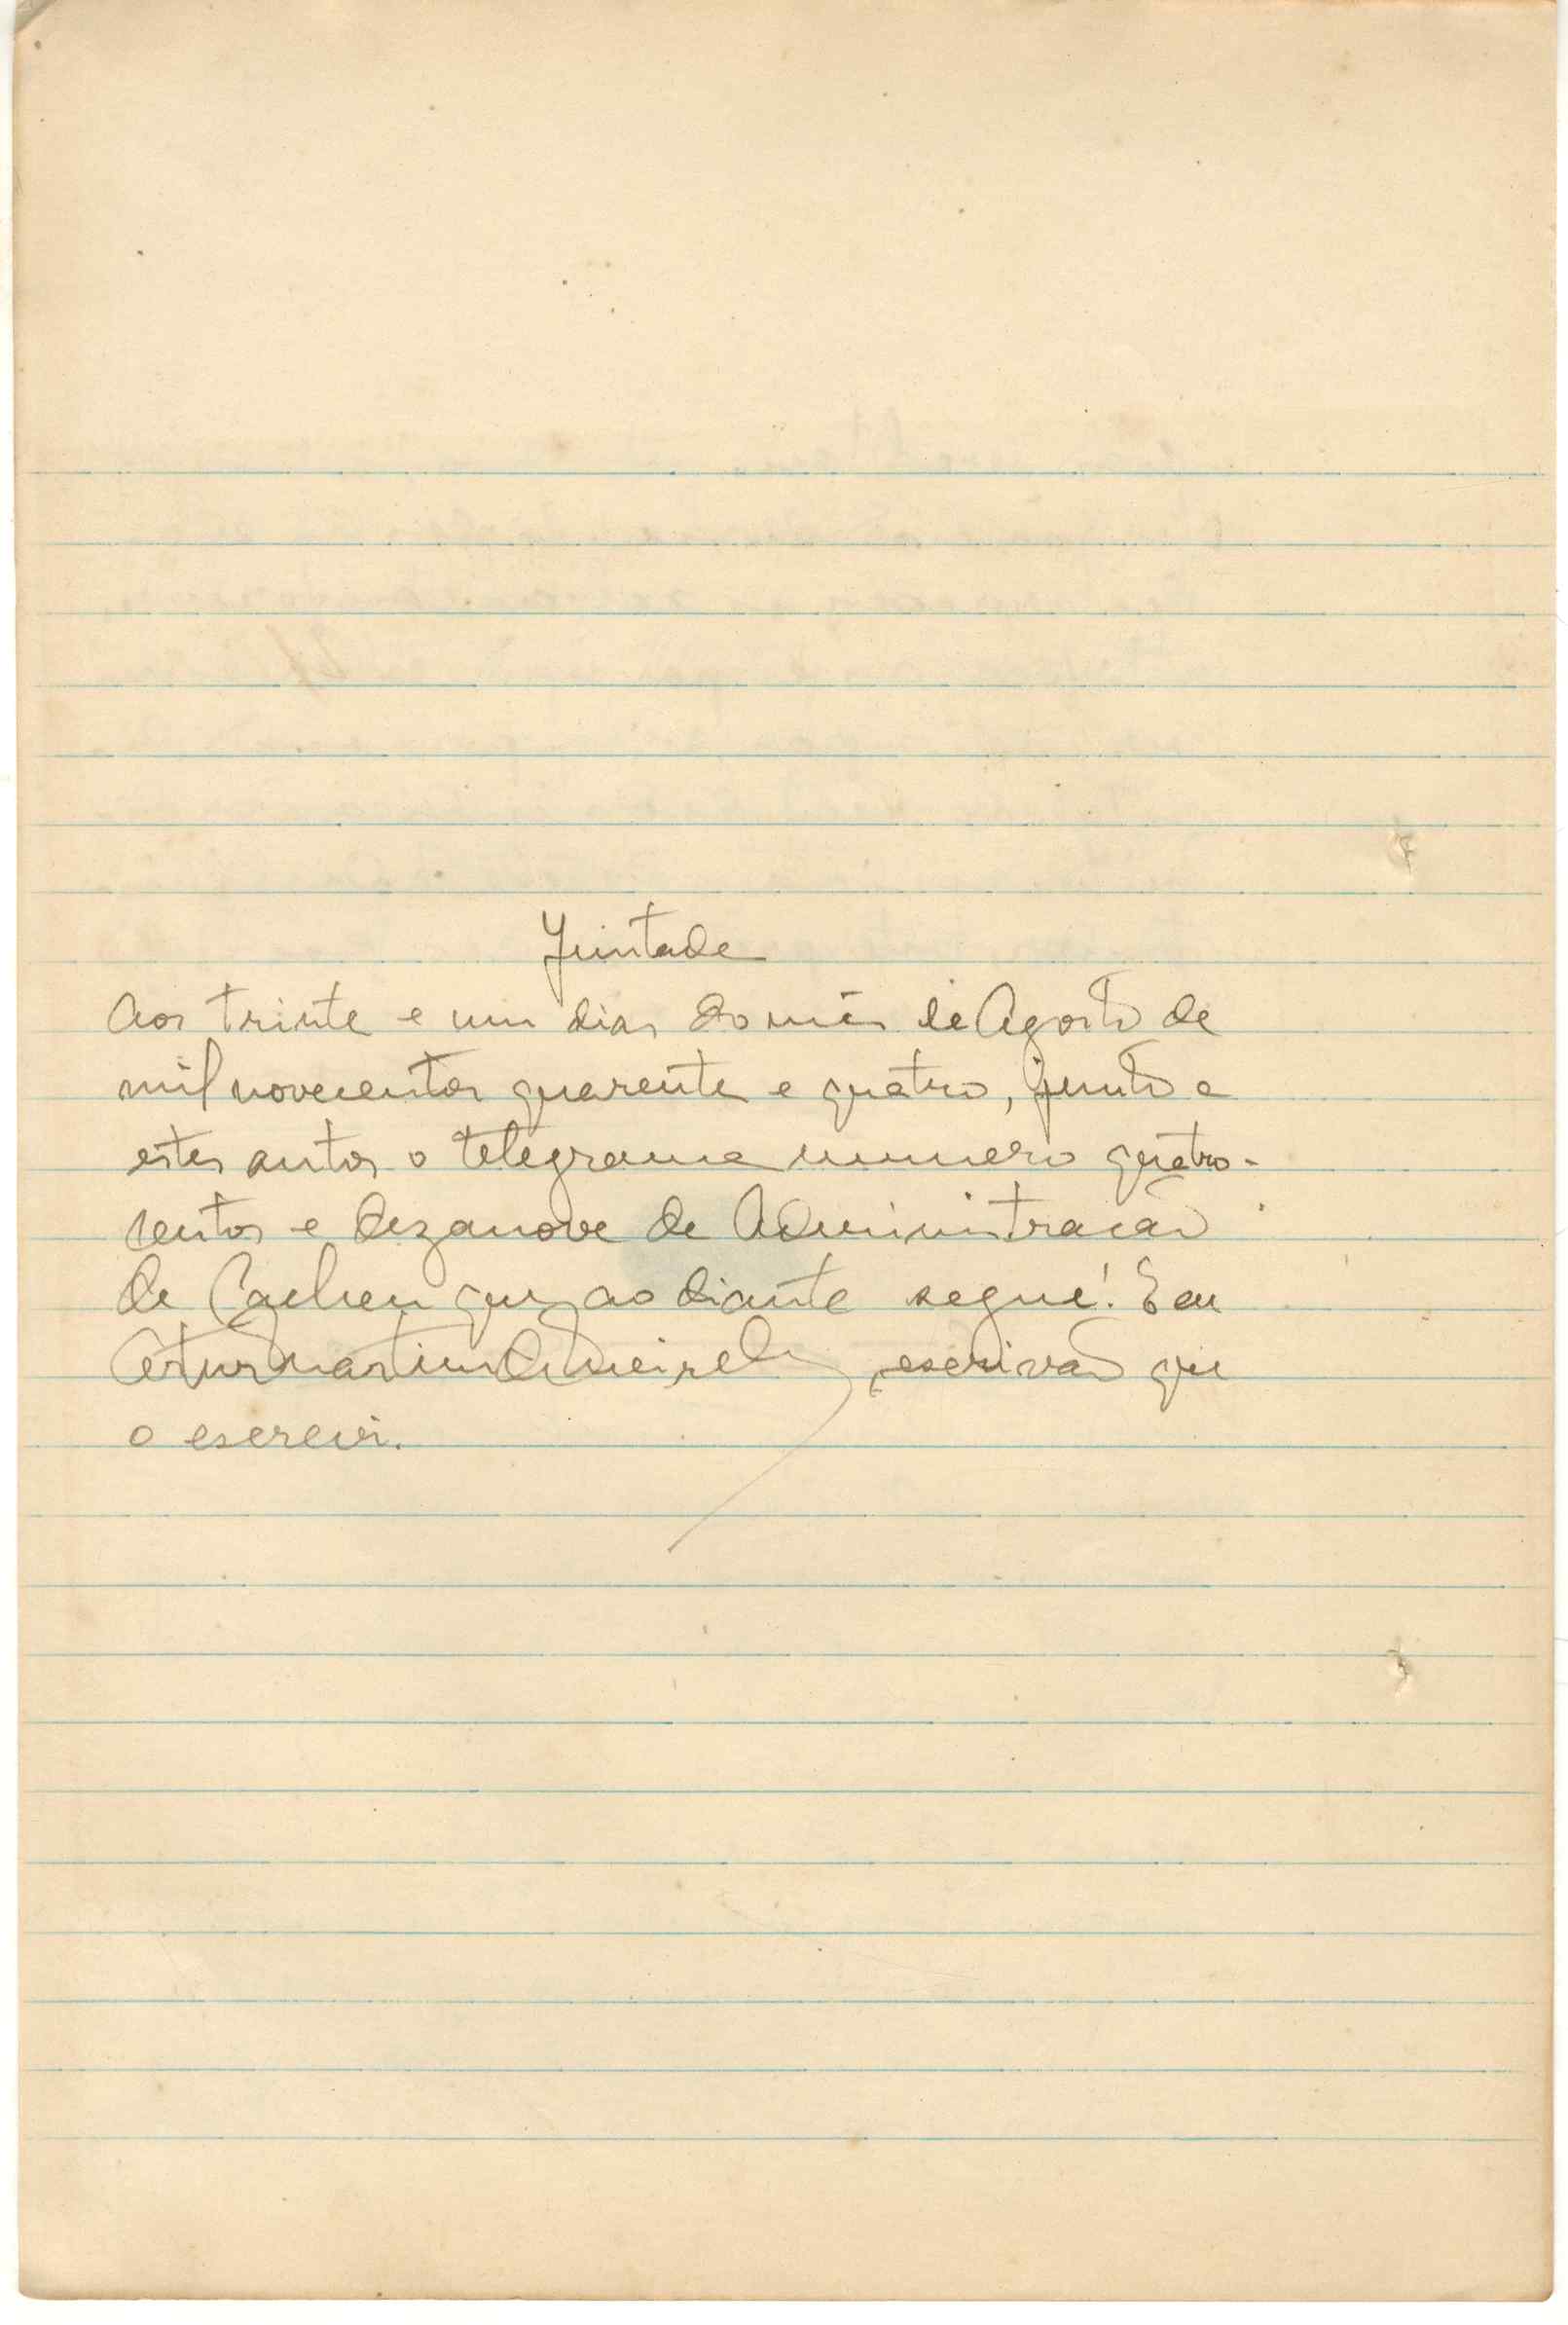 Juntada
Aos trinta e um dias do mês de Agosto de
mil novecentos quarenta e quatro, junto a
estes autos o telegrama numero quatro-
centos e dezanove da Administração
de Cacheu que ao diante segue. E eu
Artur Martins de Meireles, escrivão que
o escrevi.